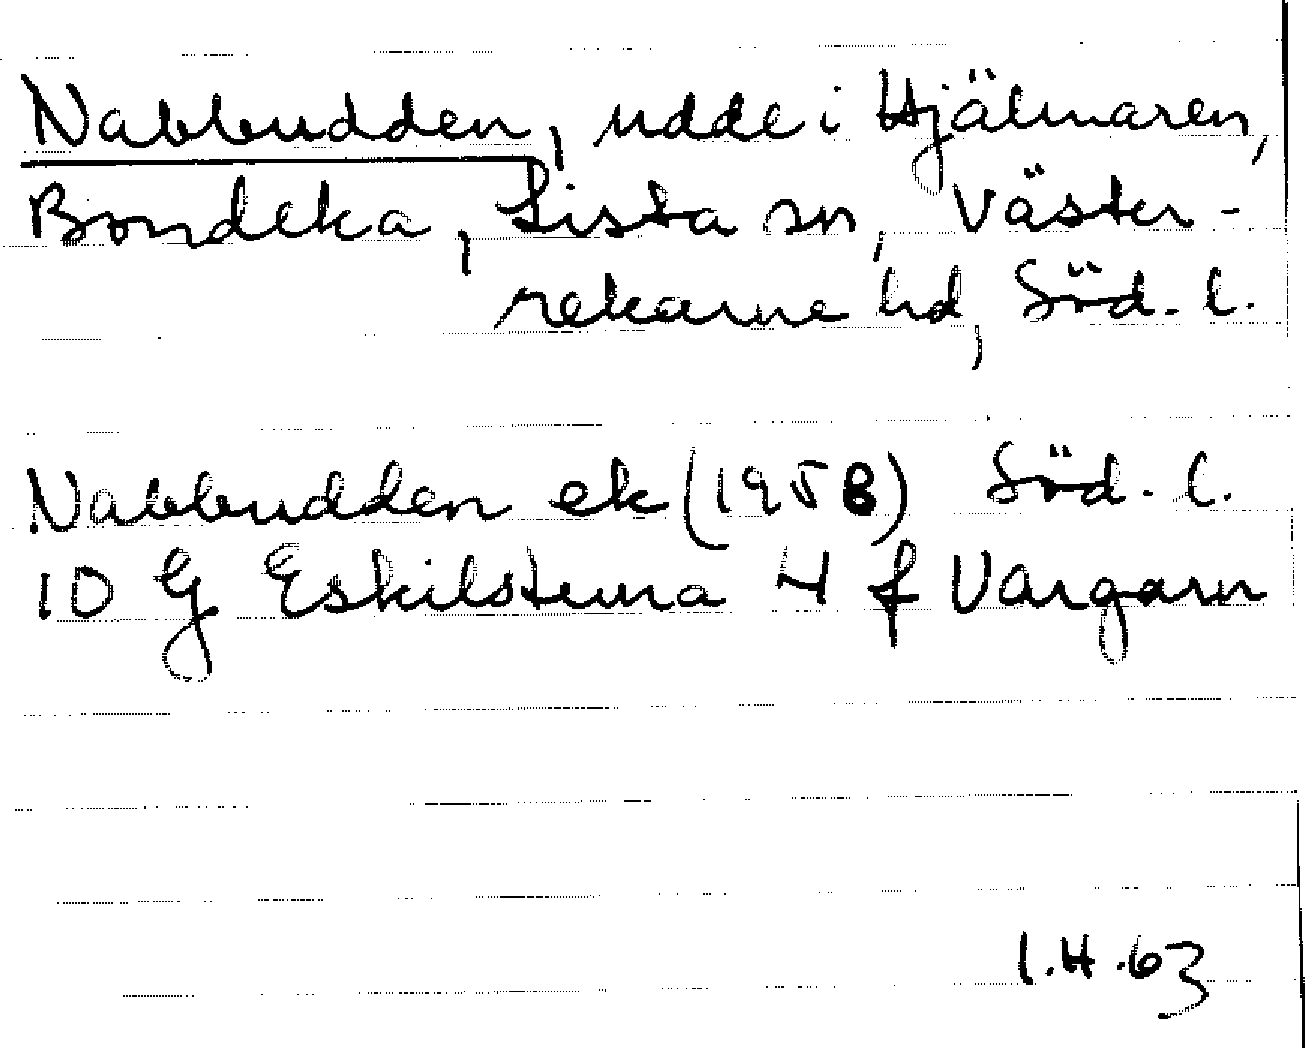 Nabbudden, udde i Hjälmaren,
Bondeka, Lista sn, Väster-
rekarne hd, Söd. l.
Nabbudden ek (1958) Söd. l.
10 G Eskilstuna 4 f Vargarn
1.H.63